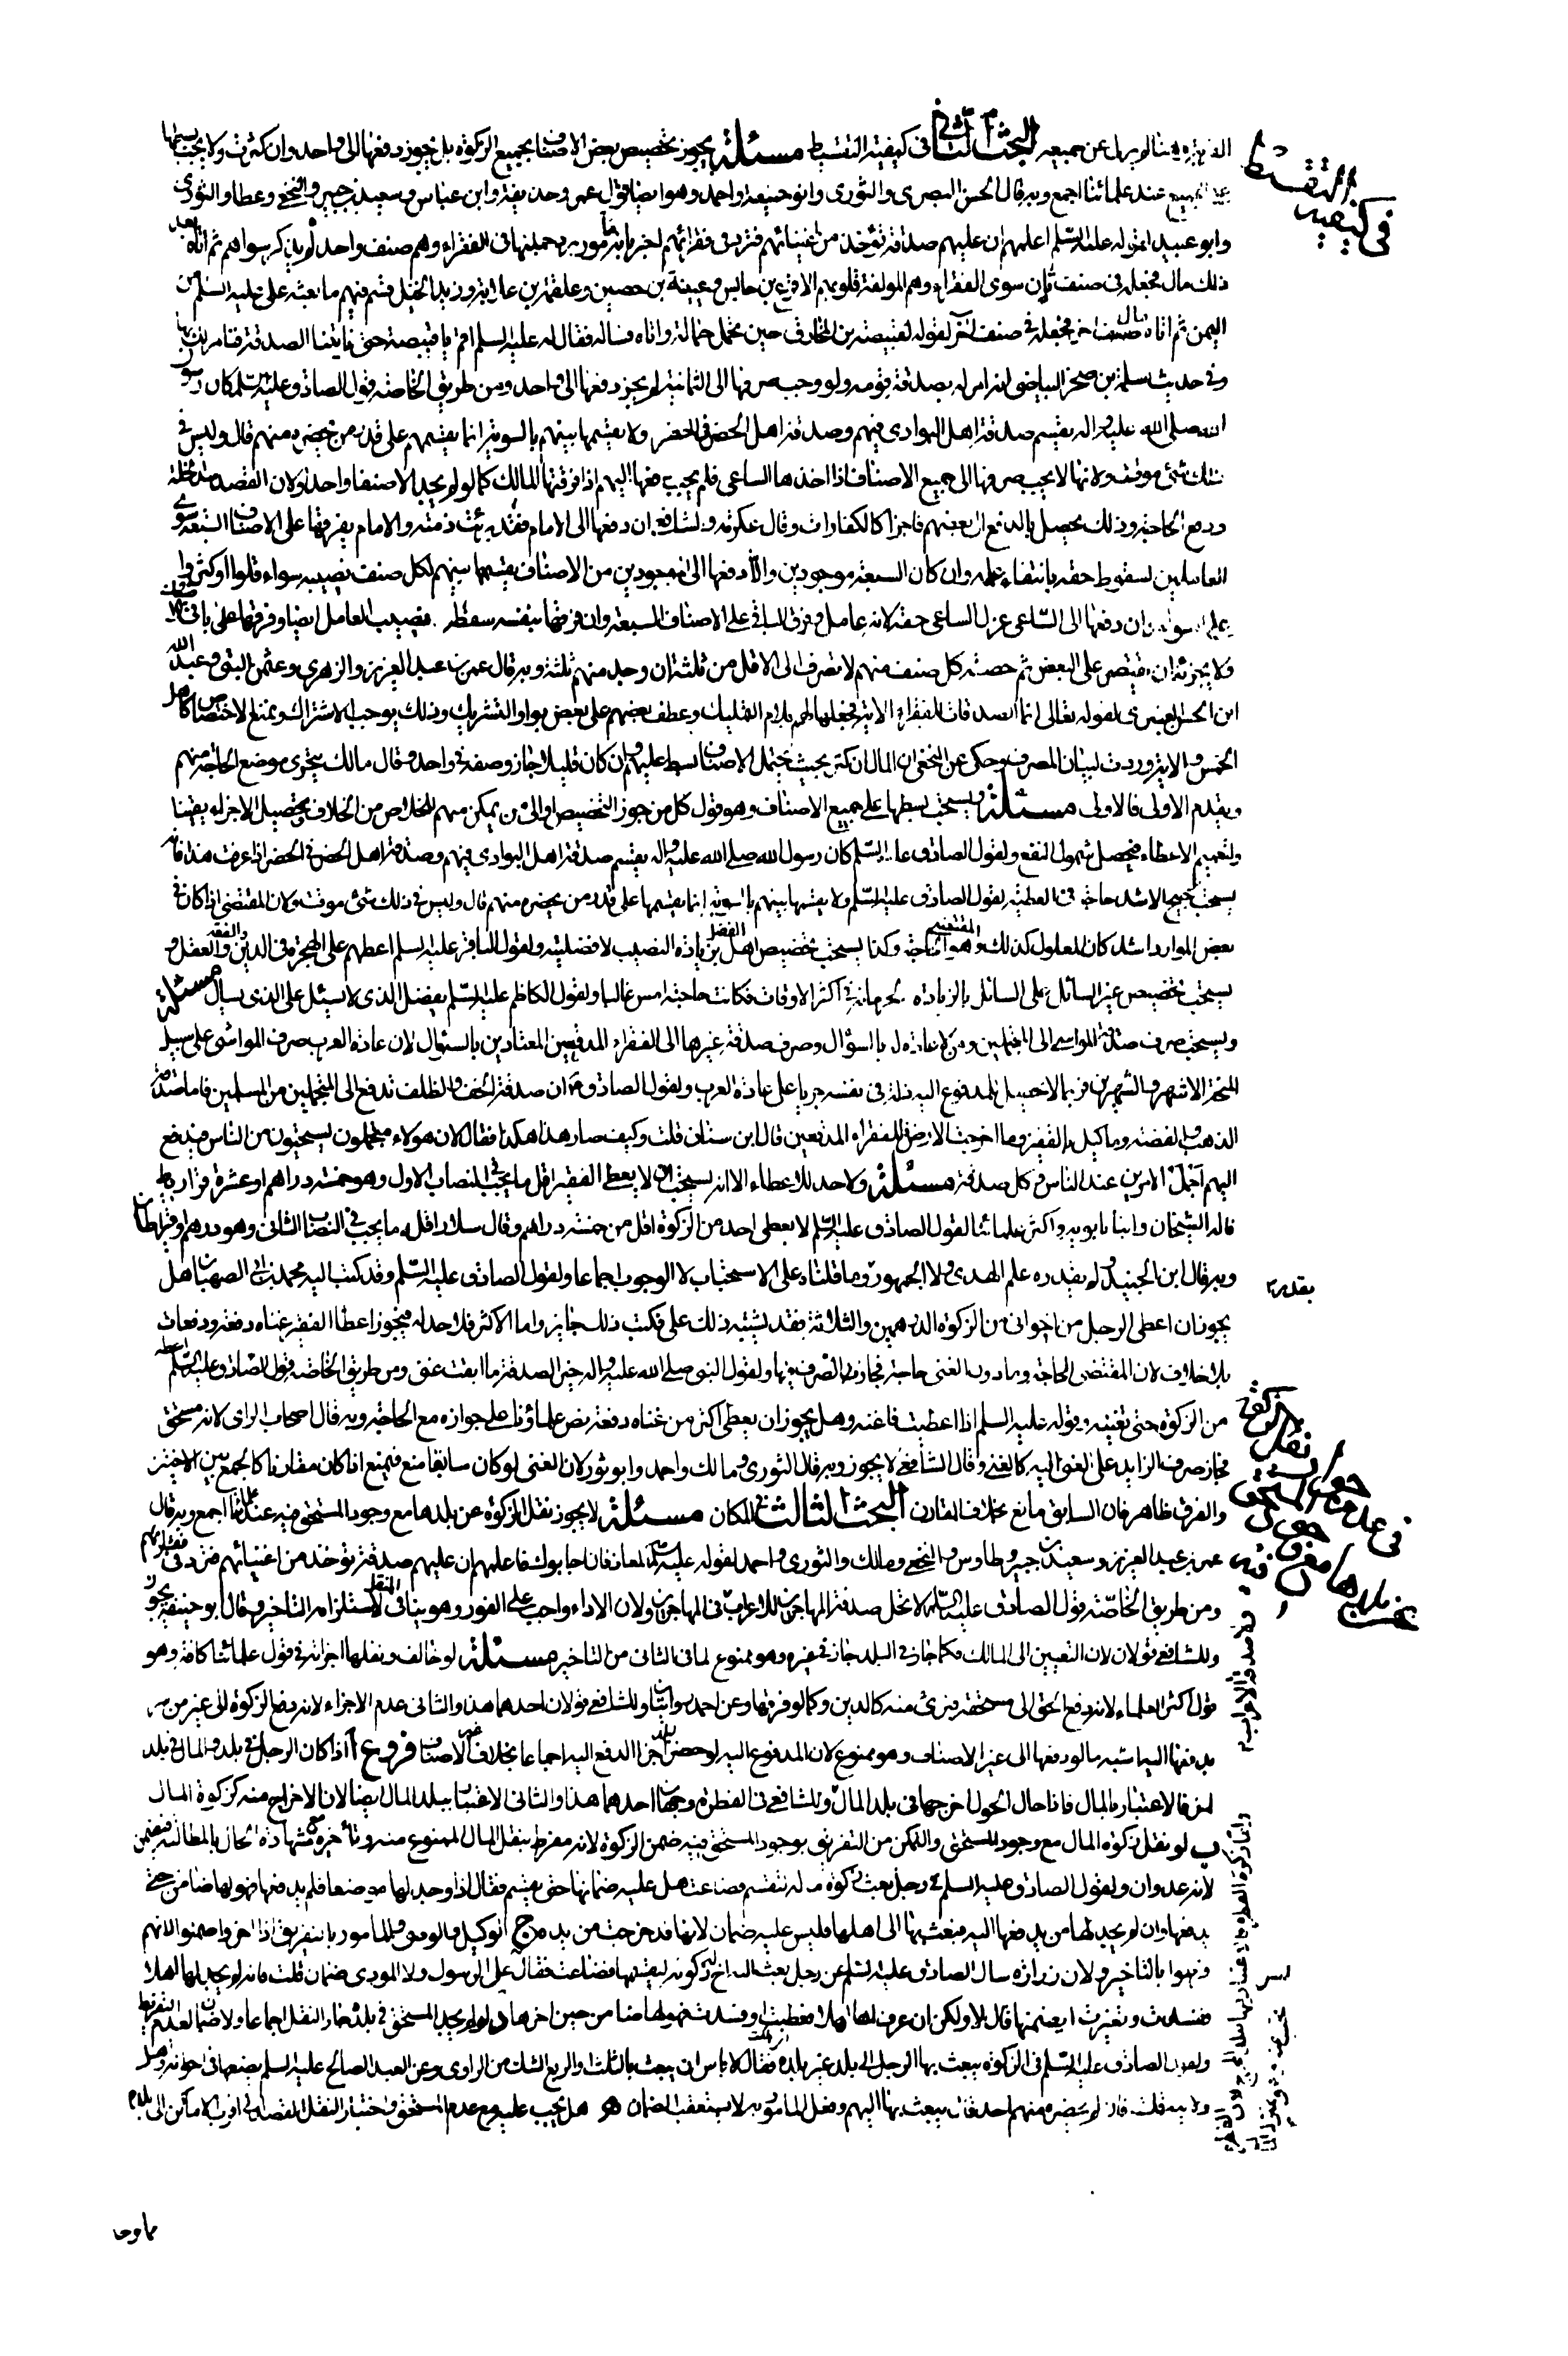 البحث الثاني في كيفية التقسيط مسئلة يجوز تخصيص بعض الاصناف بجميع الزكوة بل يجوز دفعها الى واحد وان كثرت ولا يجب بسطها
على الجميع عند علمائنا اجمع وبه قال الحسن البصرى والثورى وابو حنيفة واحمد وهو ايضا قول عمر وحذيفة وابن عباس وسعيد بن جبير والنخعى وعطا والثورى
وابو عبيد لقوله عليه السلم اعلمهم ان عليهم صدقة تؤخذ من اغنيائهم فترد فى فقرائهم اخبر بانه مامور برد جملتها فى الفقراء وهم صنف واحد لم يذكر سواهم ثم اتاه بعد
ذلك مال فجعله فى صنف ثان سوى الفقراء وهم المولفة قلوبهم الاقرع بن حابس وعيينة بن حصين وعلقمة بن علاثة وزيد الخيل قسم فيهم ما بعثه على عليه السلم من
اليمن ثم اتاه مال فجعله فى صنف اخر لقوله لقبيصة بن المخارق حين تحمل حمالة واتاه فساله فقال له عليه السلم اقم يا قبيصة حتى تاتينا الصدقة فنامر لك بها
وفى حديث سلمة بن صخر البياضى انه امر له بصدقة قومه ولو وجب صرفها الى الثمانية لم يجز دفعها الى واحد ومن طريق الخاصة قول الصادق عليه السلم كان رسول
الله صلى الله عليه واله يقسم صدقة اهل البوادى فيهم وصدقة اهل الحضر فى الحضر ولا يقسمها بينهم بالسوية انما يقسمها على قدر من يحضره منهم قال وليس فى
ذلك شئ موقت ولانها لا يجب صرفها الى جميع الاصناف اذا اخذها الساعى فلم يجب دفعها اليهم اذا فرقها المالك كما لو لم يجد الا صنفا واحدا ولان القصد سد الخلة
ودفع الحاجة وذلك يحصل بالدفع الى بعضهم فاجزا كالكفارات وقال عكرمة والشافعى ان دفعها الى الامام فقد برئت ذمته والامام يفرقها على الاصناف السبعة سوى
العاملين لسقوط حقه بانتفاء عمله وان كان السبعة موجودين والا دفعها الى الموجودين من الاصناف يقسمها بينهم لكل صنف نصيبه سواء قلوا او كثروا
على السواء وان دفعها الى الساعى عزل الساعى حقه لانه عامل وفرق الباقى على الاصناف السبعة وان فرقها بنفسه سقط نصيب العامل ايضا وفرقها على باقى
ولا يجزئه ان يقتصر على البعض ثم حصة كل صنف منهم لا تصرف الى الاقل من ثلثة ان وجد منهم ثلثة وبه قال عمر بن عبد العزيز والزهرى وعثمن البتى وعبد الله
ابن الحسن العنبرى لقوله تعالى انما الصدقات للفقراء الاية فجعلها لهم بلام التمليك وعطف بعضهم على بعض بواو التشريك وذلك يوجب الاشتراك ويمنع الاختصاص كاهل
الخمس والاية وردت لبيان المصرف وحكى عن النخعى ان المال ان كثر بحيث يحتمل الاصناف بسط عليهم وان كان قليلا جاز وضعه فى واحد وقال مالك يتحرى موضع الحاجة منهم
ويقدم الاولى فالاولى مسئلة ويستحب بسطها على جميع الاصناف وهو قول كل من جوز التخصيص او الى من يمكن منهم للخلاص من الخلاف وتحصيل الاجزاء يقينا
ولتعميم الاعطاء فيحصل شمول النفع ولقول الصادق عليه السلم كان رسول الله صلى الله عليه واله يقسم صدقة اهل البوادى فيهم وصدقة اهل الحضر فى الحضر اذا عرفت هذا فانه
يستحب ترجيح الاشد حاجة فى العطية لقول الصادق عليه السلم ولا يقسمها بينهم بالسوية انما يقسمها على قدر من يحضره منهم قال وليس فى ذلك شئ موقت ولان المقتضى اذا كان فى
بعض الموارد اشد كان المعلول كذلك والمقتضى هو الحاجة وكذا يستحب تخصيص اهل الفضل بزيادة النصيب لافضليته ولقول الباقر عليه السلم اعطهم على الهجرة فى الدين والفقه والعقل و
يستحب تخصيص غير السائل على السائل بالزيادة لحرمانه فى اكثر الاوقات فكانت حاجته امس غالبا ولقول الكاظم عليه السلم يفضل الذى لا يسئل على الذى يسأل مسئلة
ويستحب صرف صدقة المواشى الى المتجملين ومن لا عادة له بالسؤال وصرف صدقة غيرها الى الفقراء المدقعين المعتادين بالسؤال لان عادة العرب صرف المواشى على سبيل
المنحة الاشهر والشهرين فربما لا يحصل للمدفوع اليه ذلة فى نفسه جريا على عادة العرب ولقول الصادق ان صدقة الخف والظلف تدفع الى المتجملين من المسلمين فاما صدقة
الذهب والفضة وما كيل بالقفيز وما اخرجت الارض للفقراء المدقعين قال ابن سنان قلت وكيف صار هذا هكذا فقال لان هولاء متجملون يستحيون من الناس فيدفع
اليهم اجمل الامرين عند الناس وكل صدقة مسئلة ولا حد للاعطاء الا انه يستحب ان لا يعطى الفقير اقل ما يجب فى النصاب الاول وهو خمسة دراهم او عشرة قراريط
قاله الشيخان وابنا بابويه واكثر علمائنا لقول الصادق عليه السلم لا يعطى احد من الزكوة اقل من خمسة دراهم وقال سلار اقله ما يجب فى النصاب الثانى وهو درهم او قيراطان
وبه قال ابن الجنيد ولم يقدره علم الهدى ولا الجمهور وما قلناه على الاستحباب لا الوجوب اجماعا ولقول الصادق عليه السلم وقد كتب اليه محمد بن ابى الصهبان هل
يجوز ان اعطى الرجل من اخوانى من الزكوة الدرهمين والثلاثة فقد يشتبه ذلك على فكتب ذلك جايز واما الاكثر فلا حد له فيجوز اعطا الفقير غناه دفعة ودفعات
بلا خلاف لان المقتضى الحاجة وما دون الغنى حاجة فجاز الصرف فيها ولقول النبى صلى الله عليه واله خير الصدقة ما ابقت غنى ومن طريق الخاصة قول الصادق عليه السلم اعطه
من الزكوة حتى تغنيه وقوله عليه السلم اذا اعطيت فاغنه وهل يجوز ان يعطى اكثر من غناه دفعة نص علماؤنا على جوازه مع الحاجة وبه قال اصحاب الراى لانه مستحق
فجاز صرف الزايد على الغنى اليه كالغنى وقال الشافعى لا يجوز وبه قال الثورى ومالك واحمد وابو ثور لان الغنى لو كان سابقا منع فيمنع اذا كان مقارنا كالجمع بين الاختين
والفرق ظاهر فان السابق مانع بخلاف المقارن البحث الثالث فى المكان مسئلة لا يجوز نقل الزكوة عن بلدها مع وجود المستحق فيه عند علمائنا اجمع وبه قال
عمر بن عبد العزيز وسعيد بن جبير وطاوس والنخعى ومالك والثورى واحمد لقوله عليه السلم لمعاذ فان اجابوك فاعلمهم ان عليهم صدقة تؤخذ من اغنيائهم فترد فى فقرائهم
ومن طريق الخاصة قول الصادق عليه السلم لا تحل صدقة المهاجرين للاعراب ولا صدقة الاعراب فى المهاجرين ولان الاداء واجب على الفور وهو ينافى النقل لاستلزامه التاخير وقال ابو حنيفة يجوز
وللشافعى قولان لان التعيين الى المالك فكما جاز فى البلد جاز فى غيره وهو ممنوع لما فى الثانى من التاخير مسئلة لو خالف ونقلها اجزاته فى قول علمائنا كافة وهو
قول اكثر العلماء لانه دفع الحق الى مستحقه فبرئ منه كالدين وكما لو فرقها وعن احمد روايتان وللشافعى قولان احدهما هذا والثانى عدم الاجزاء لانه دفع الزكوة الى غير من امر
بدفعها اليه اشبه ما لو دفعها الى غير الاصناف وهو ممنوع لان المدفوع اليه لو حضر بلد اجزا الدفع اليه اجماعا بخلاف غير الاصناف فروع ا اذا كان الرجل فى بلد والمال فى بلد
اخر فالاعتبار بالمال فاذا حال الحول اخرجها فى بلد المال وللشافعى فى الفطرة وجهان احدهما هذا والثانى الاعتبار ببلد المال ايضا لان الاخراج منه كزكوة المال
ب لو نقل زكوة المال مع وجود المستحق والتمكن من التفريق بوجود المستحق فيه ضمن الزكوة لانه مفرط بنقل المال الممنوع منه وتأخيره مع شهادة الحال بالمطالبة فيضمن
لانه عدوان ولقول الصادق عليه السلم فى رجل بعث زكوة ماله لتقسم فضاعت هل عليه ضمانها حتى يقسم فقال اذا وجد لها موضعا فلم يدفعها فهو لها ضامن حتى
يدفعها وان لم يجد لها من يدفعها اليه فبعث بها الى اهلها فليس عليه ضمان لانها قد خرجت من يده ج الوكيل والوصى والمامور بالتفريق اذا اخروا ضمنوا لانهم
ونهوا بالتاخير ولان زرارة سال الصادق عليه السلم عن رجل بعث اليه اخ له زكوته ليقسمها فضاعت فقال ليس على الرسول ولا المودى ضمان قلت فانه لم يجد لها اهلا
ففسدت وتغيرت ايضمنها قال لا ولكن ان عرف لها اهلا فعطبت او فسدت فهو لها ضامن من حين اخرها د لو لم يجد المستحق فى بلده جاز النقل اجماعا ولا ضمان لعدم التفريط
ولقول الصادق عليه السلم فى الزكوة يبعث بها الرجل الى بلد غير بلده فقال لا باس ان يبعث بالثلث او الربع الشك من الراوى وعن العبد الصالح عليه السلم يضعها فى اخوانه واهل
ولايته قلت فان لم يحضره منهم احد قال يبعث بها اليهم وفعل المامور به لا يستعقب الضمان هـ هل يجب عليه مع عدم المستحق واختيار النقل القصد الى اقرب الاماكن الى بلده
فى كيفية التقسيط
بقدره